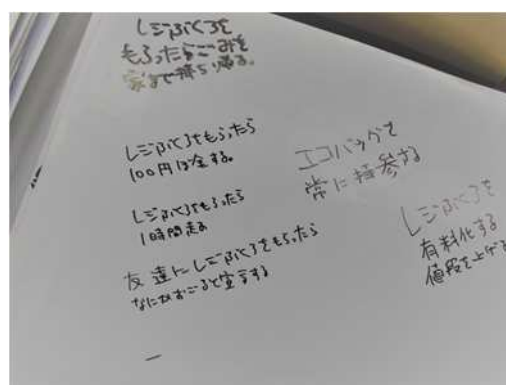 レジぶくろを
もらったらごみを
家まで持ち帰る。
レジぶくろをもらったら
100円ば金する。
レジぶくろをもらったら
1時間走る
友達にレジぶくろをもらったら
なにかおごると宣言する
エコバッグを
常に持参する
レジぶくろを
有料化する
値段を上げる